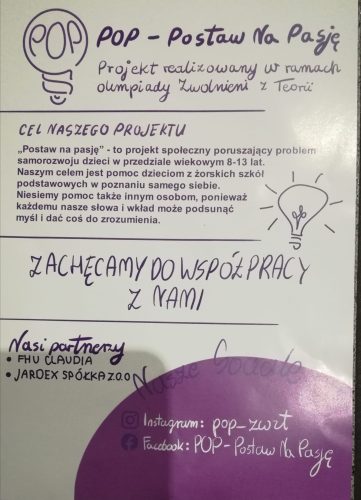 POP
POP - Postaw Na Pasję
Projekt realizowany w ramach
olimpiady Zwolnieni z Teorii
CEL NASZEGO PROJEKTU
„Postaw na pasję” - to projekt społeczny poruszający problem
samorozwoju dzieci w przedziale wiekowym 8-13 lat.
Naszym celem jest pomoc dzieciom z żorskich szkół
podstawowych w poznaniu samego siebie.
Niesiemy pomoc także innym osobom, ponieważ
każdemu nasze słowa i wkład może podsunąć
myśl i dać coś do zrozumienia.
ZACHĘCAMY DO WSPÓŁPRACY
Z NAMI
Nasi partnerzy
• FHU CLAUDIA
• JARDEX SPÓŁKA Z.O.O
Nasze Sociale
Instagram: pop_zwzt
Facebook: POP - Postaw Na Pasję